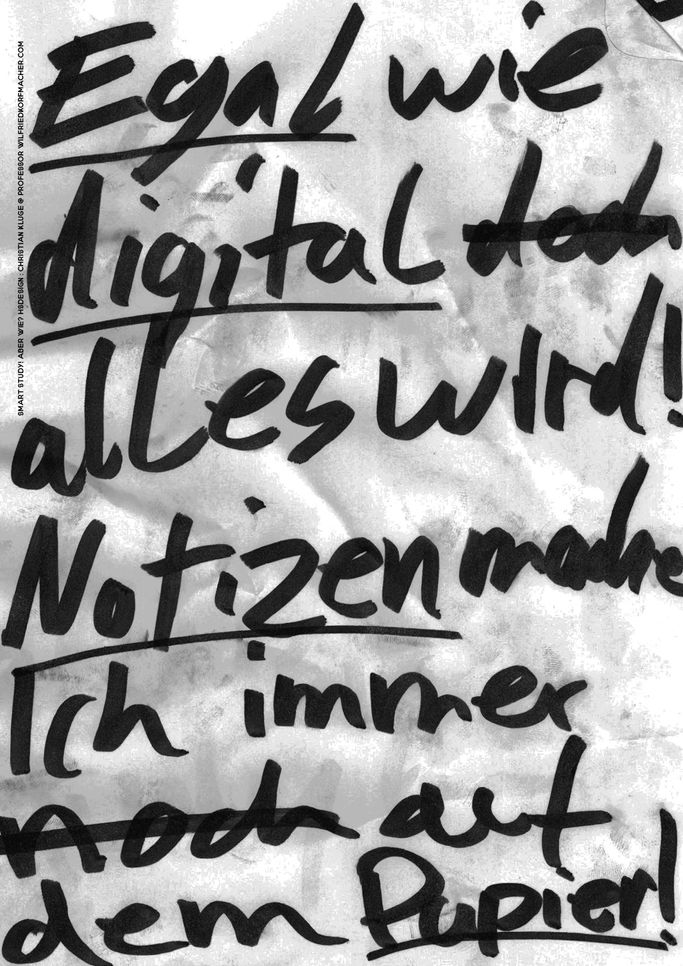 Egal wie
digital doch
alles wird!
Notizen mache
Ich immer
noch auf
dem Papier!
SMART STUDY! ABER WIE? HSDESIGN : CHRISTIAN KLUGE @ PROFESSOR WILFRIEDKORFMACHER.COM